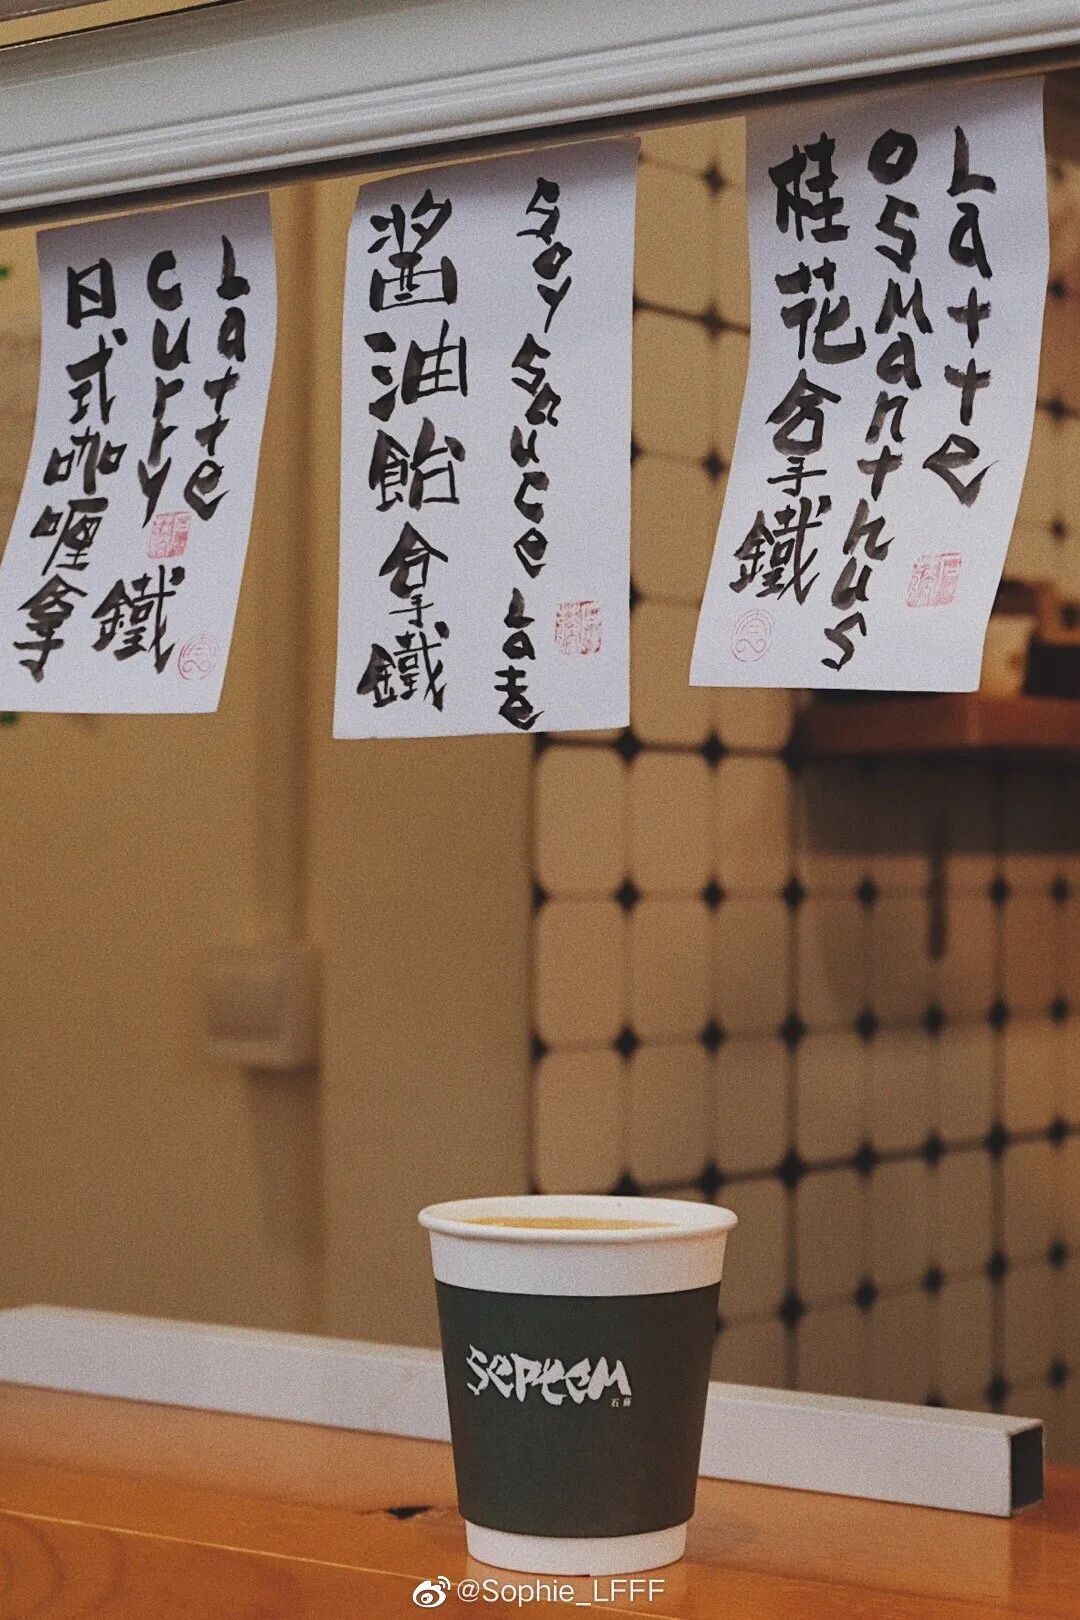 Latte
Curry
日式咖喱拿
鐵
Soy Sauce Latte
醤油飴拿鐵
Latte
osManthus
桂花拿鐵
SePteeM
石蒜
@Sophie_LFFF